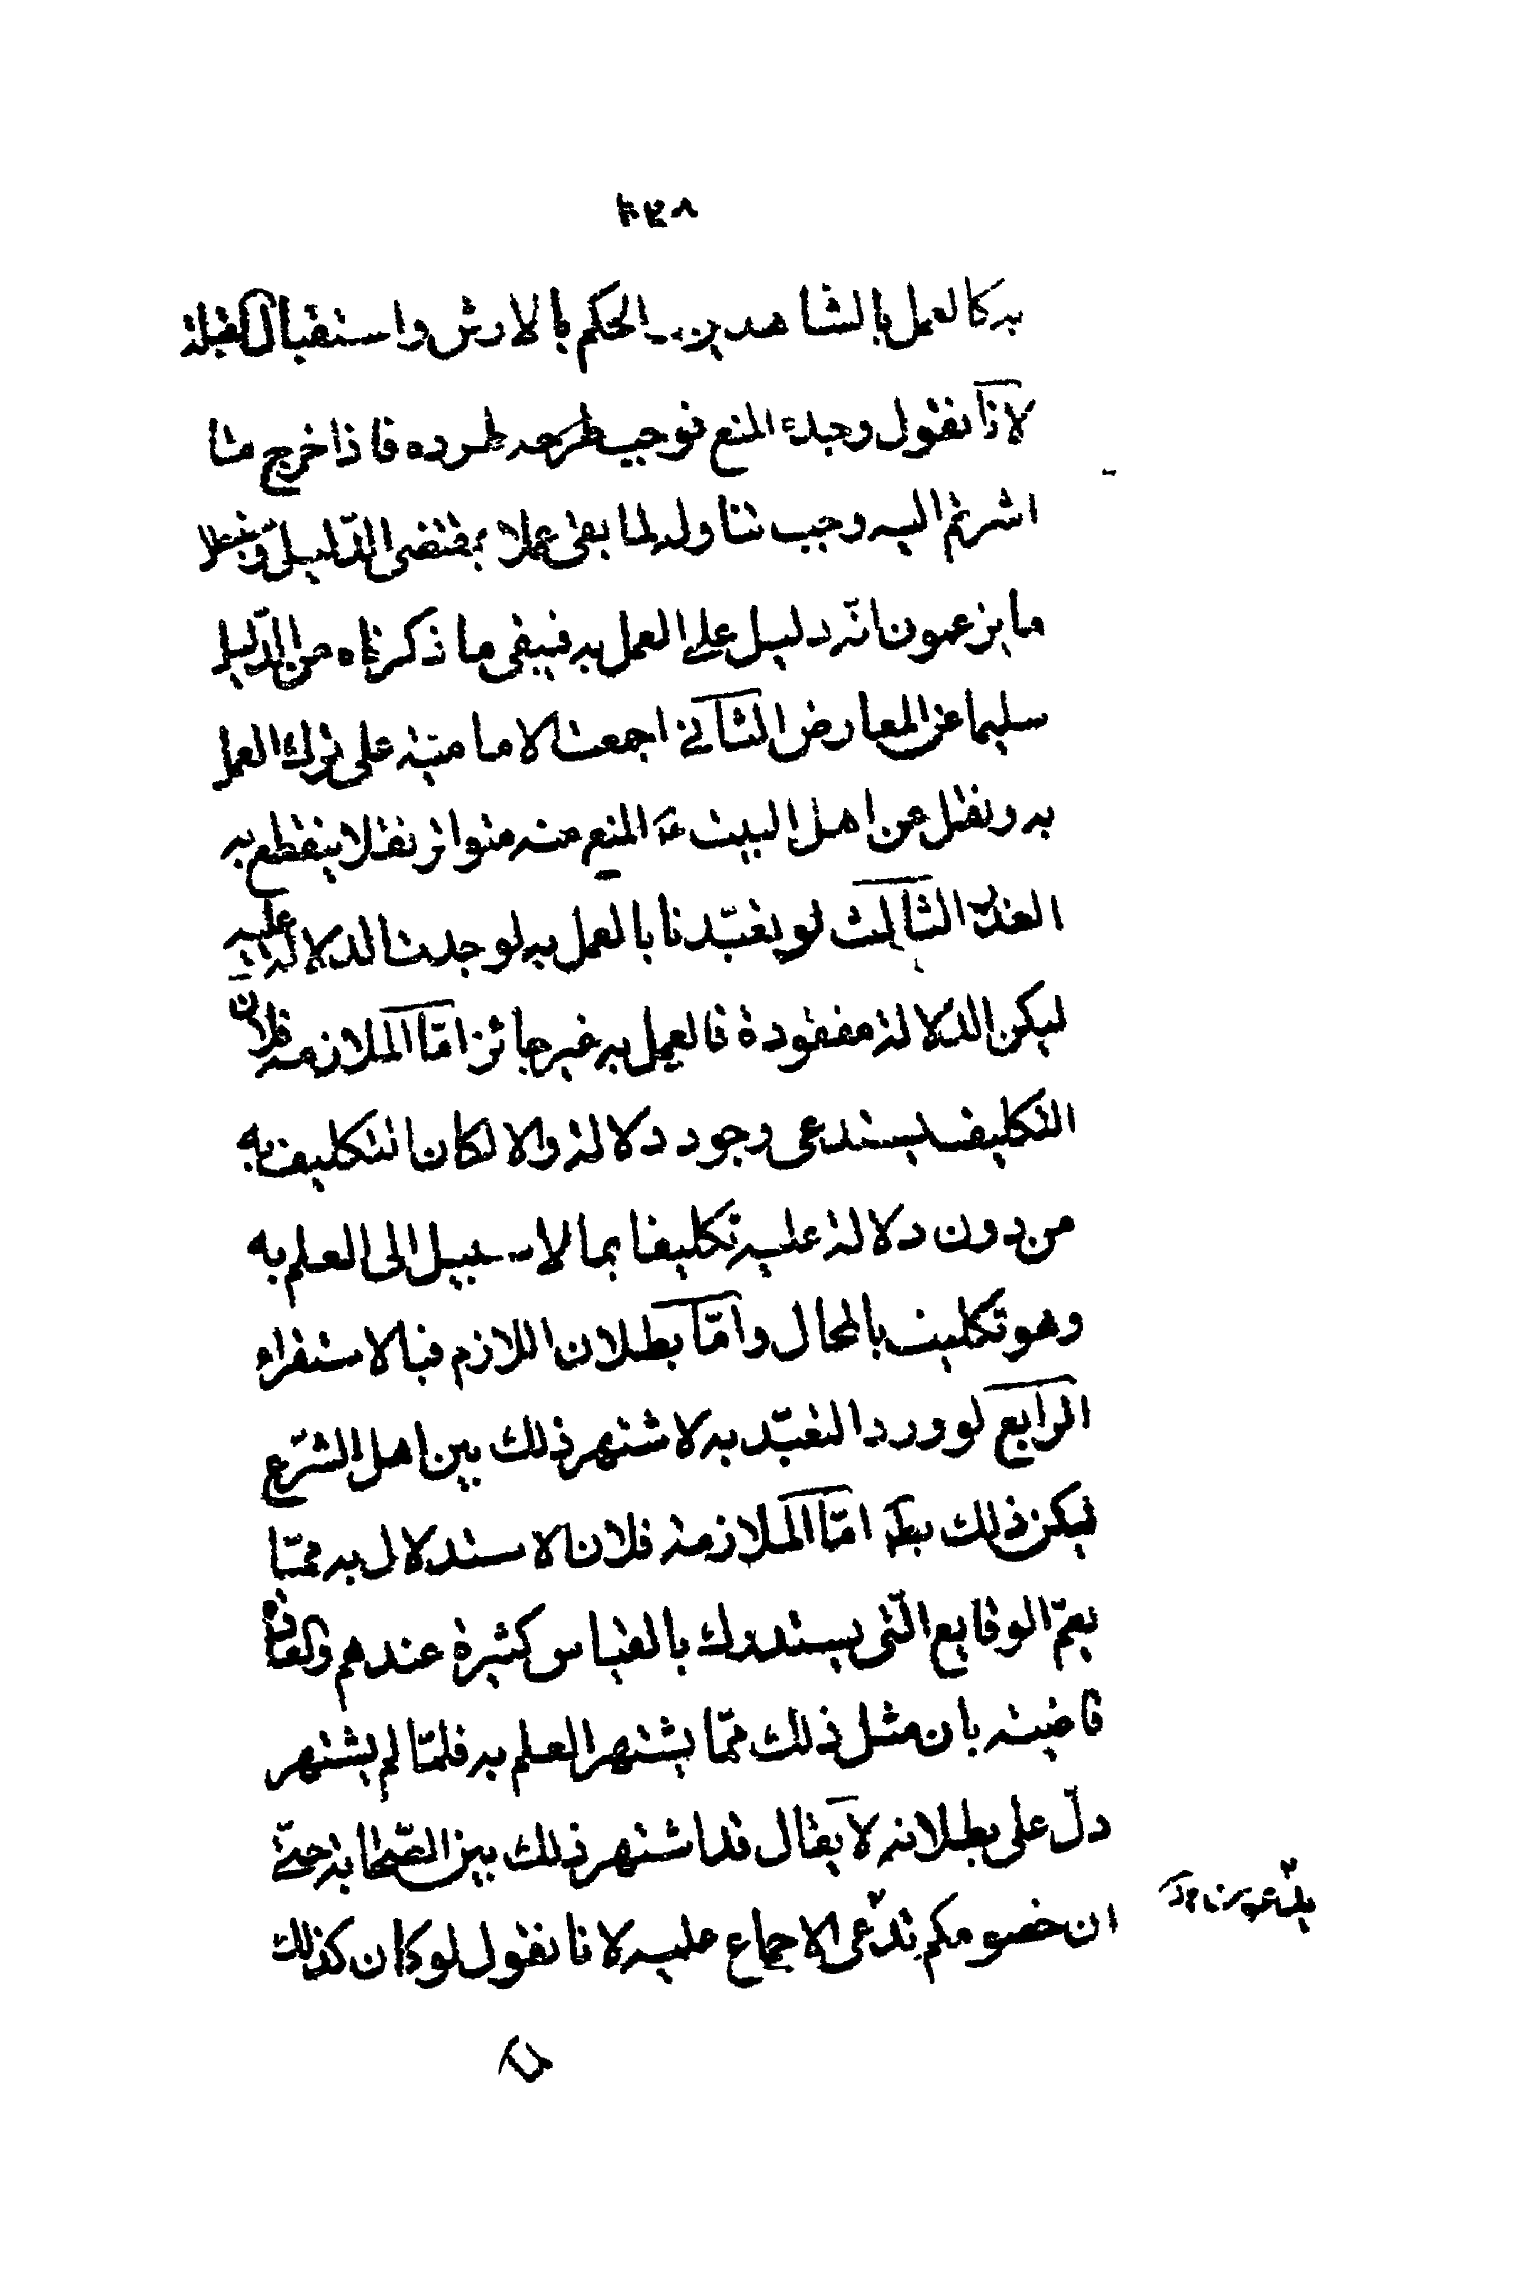 به كالعمل بالشاهدين والحكم بالارش واستقبال القبلة
لانا نقول وجدء المنع توجب طرحه طرده فاذا خرج مثا
اشرتم اليه وجب تناوله لما بقى عملا بمقتضى الدّليل وبمنع لا
ما يزعمون انّه دليل على العمل به فيبقى ما ذكرناه من الدّليل
سليما عن المعارض الثانى اجمعت الامامية على ترك العمل
به ونقل عن اهل البيت ع المنع منه متواتر نقلا ينقطع به
العذر الثالث لو تعبّدنا بالعمل به لوجدت الدلالة عليه
ليكن الدلالة مفقودة فالعمل به غير جائز امّا الملازمة فلان
التكليف يستدعى وجود دلالة والا لكان التكليف به
من دون دلالة عليه تكليفا بما لا سبيل الى العلم به
وهو تكليف بالمحال وامّا بطلان اللازم فبالاستقراء
الرابع لو ورد التعبّد به لاشتهر ذلك بين اهل الشرع
ليكن ذلك بط امّا الملازمة فلان الاستدلال به ممّا
يعمّ الوقايع الّتى يستدرك بالقياس كثيرة عندهم والعادة
قاضية بان مثل ذلك ممّا يشتهر العلم به فلمّا لم يشتهر
دلّ على بطلانه لا يقال قد اشتهر ذلك بين الصّحابة حتّى
ان خصومكم تدّعى الاجماع عليه لانا نقول لو كان كذلك